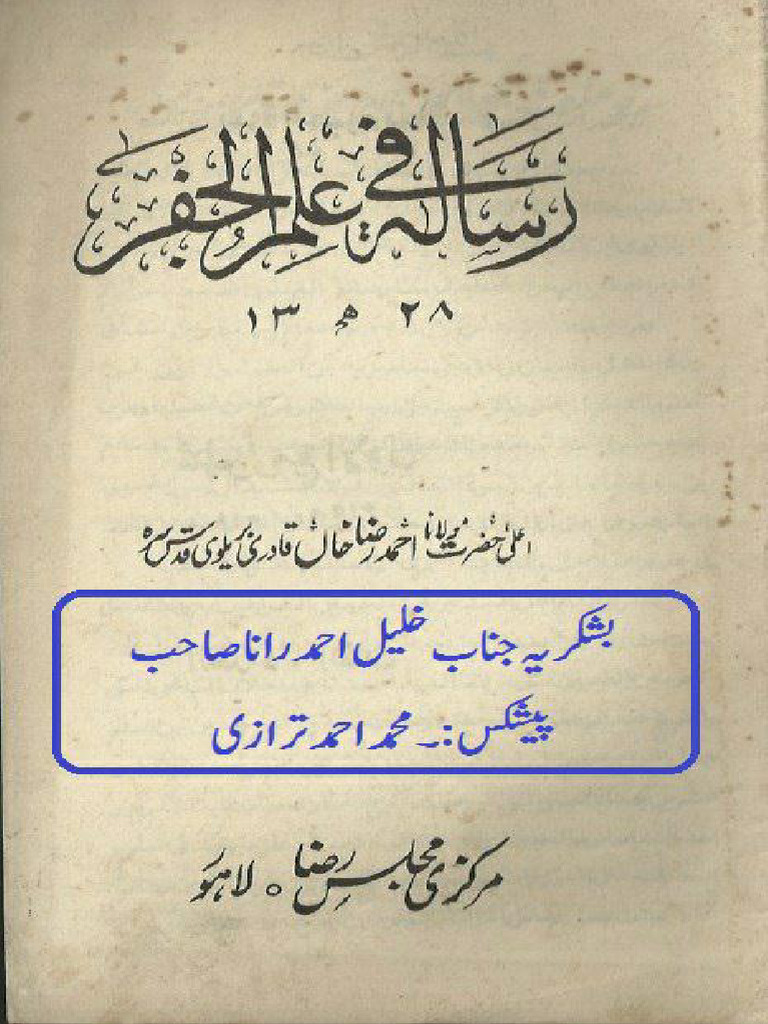 رسالہ فی علم الجفر
۱۳ ھ ۲۸
اعلیٰ حضرت مولانا احمد رضا خاں قادری بریلوی قدس سرہ
بشکریہ جناب خلیل احمد رانا صاحب
پیشکس :۔ محمد احمد ترازی
مرکزی مجلس رضا ○ لاہور